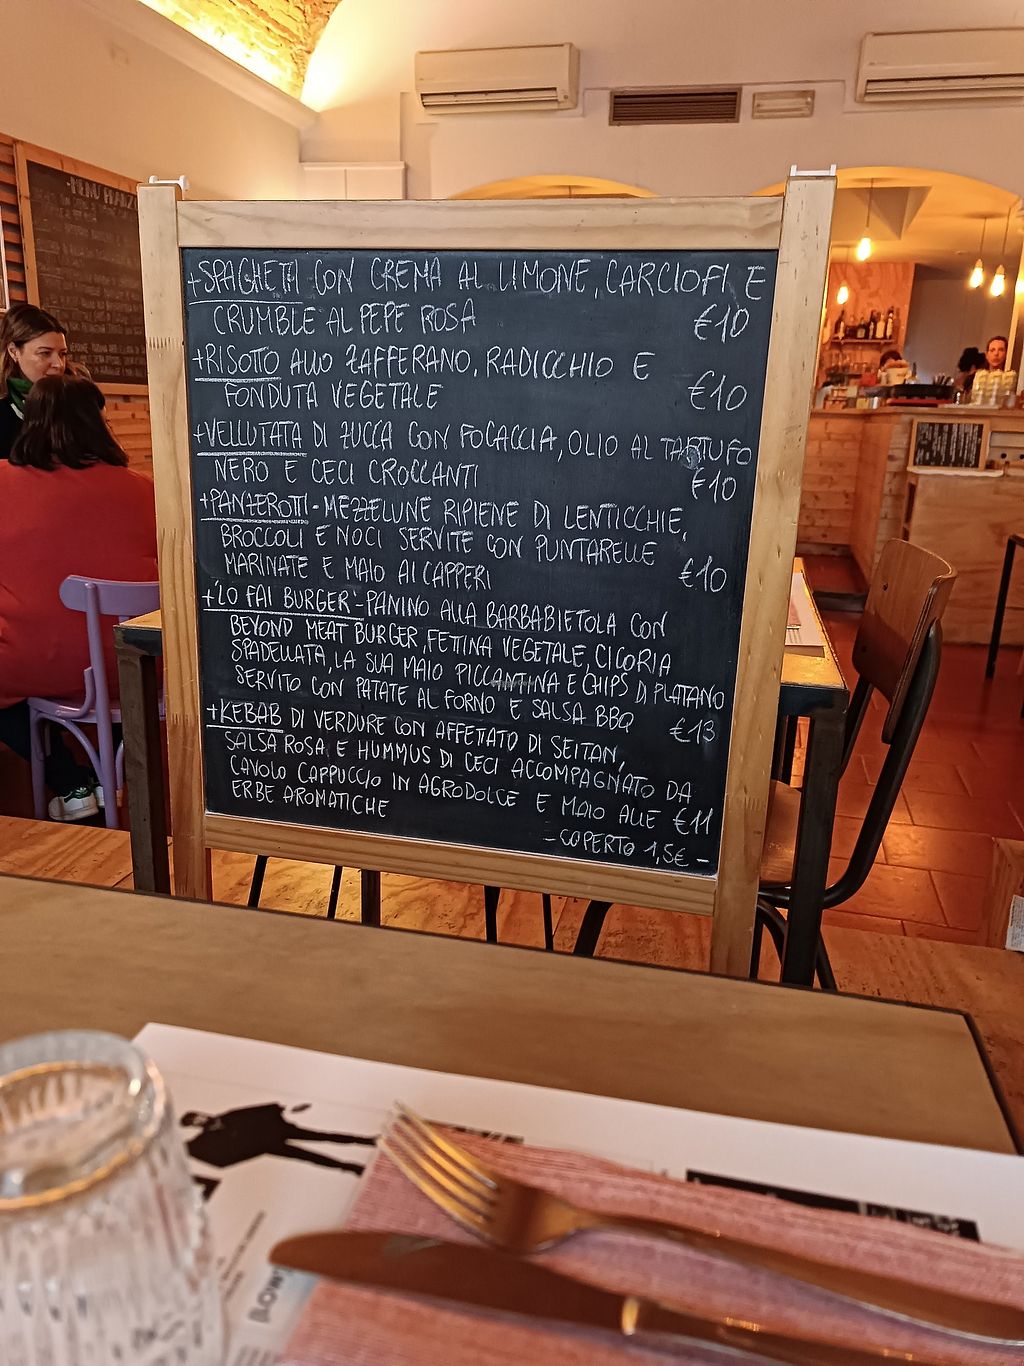 -MENU PRANZO
+SPAGHETTI CON CREMA AL LIMONE, CARCIOFI E
CRUMBLE AL PEPE ROSA €10
+RISOTTO ALLO ZAFFERANO, RADICCHIO E
FONDUTA VEGETALE €10
+VELLUTATA DI ZUCCA CON FOCACCIA, OLIO AL TARTUFO
NERO E CECI CROCCANTI €10
+PANZEROTTI - MEZZELUNE RIPIENE DI LENTICCHIE,
BROCCOLI E NOCI SERVITE CON PUNTARELLE
MARINATE E MAIO AI CAPPERI €10
+"LO FAI BURGER" - PANINO ALLA BARBABIETOLA CON
BEYOND MEAT BURGER, FETTINA VEGETALE, CICORIA
SPADELLATA, LA SUA MAIO PICCANTINA E CHIPS DI PLATANO
SERVITO CON PATATE AL FORNO E SALSA BBQ €13
+KEBAB DI VERDURE CON AFFETTATO DI SEITAN,
SALSA ROSA E HUMMUS DI CECI ACCOMPAGNATO DA
CAVOLO CAPPUCCIO IN AGRODOLCE E MAIO ALLE
ERBE AROMATICHE €11
- COPERTO 1,5€ -